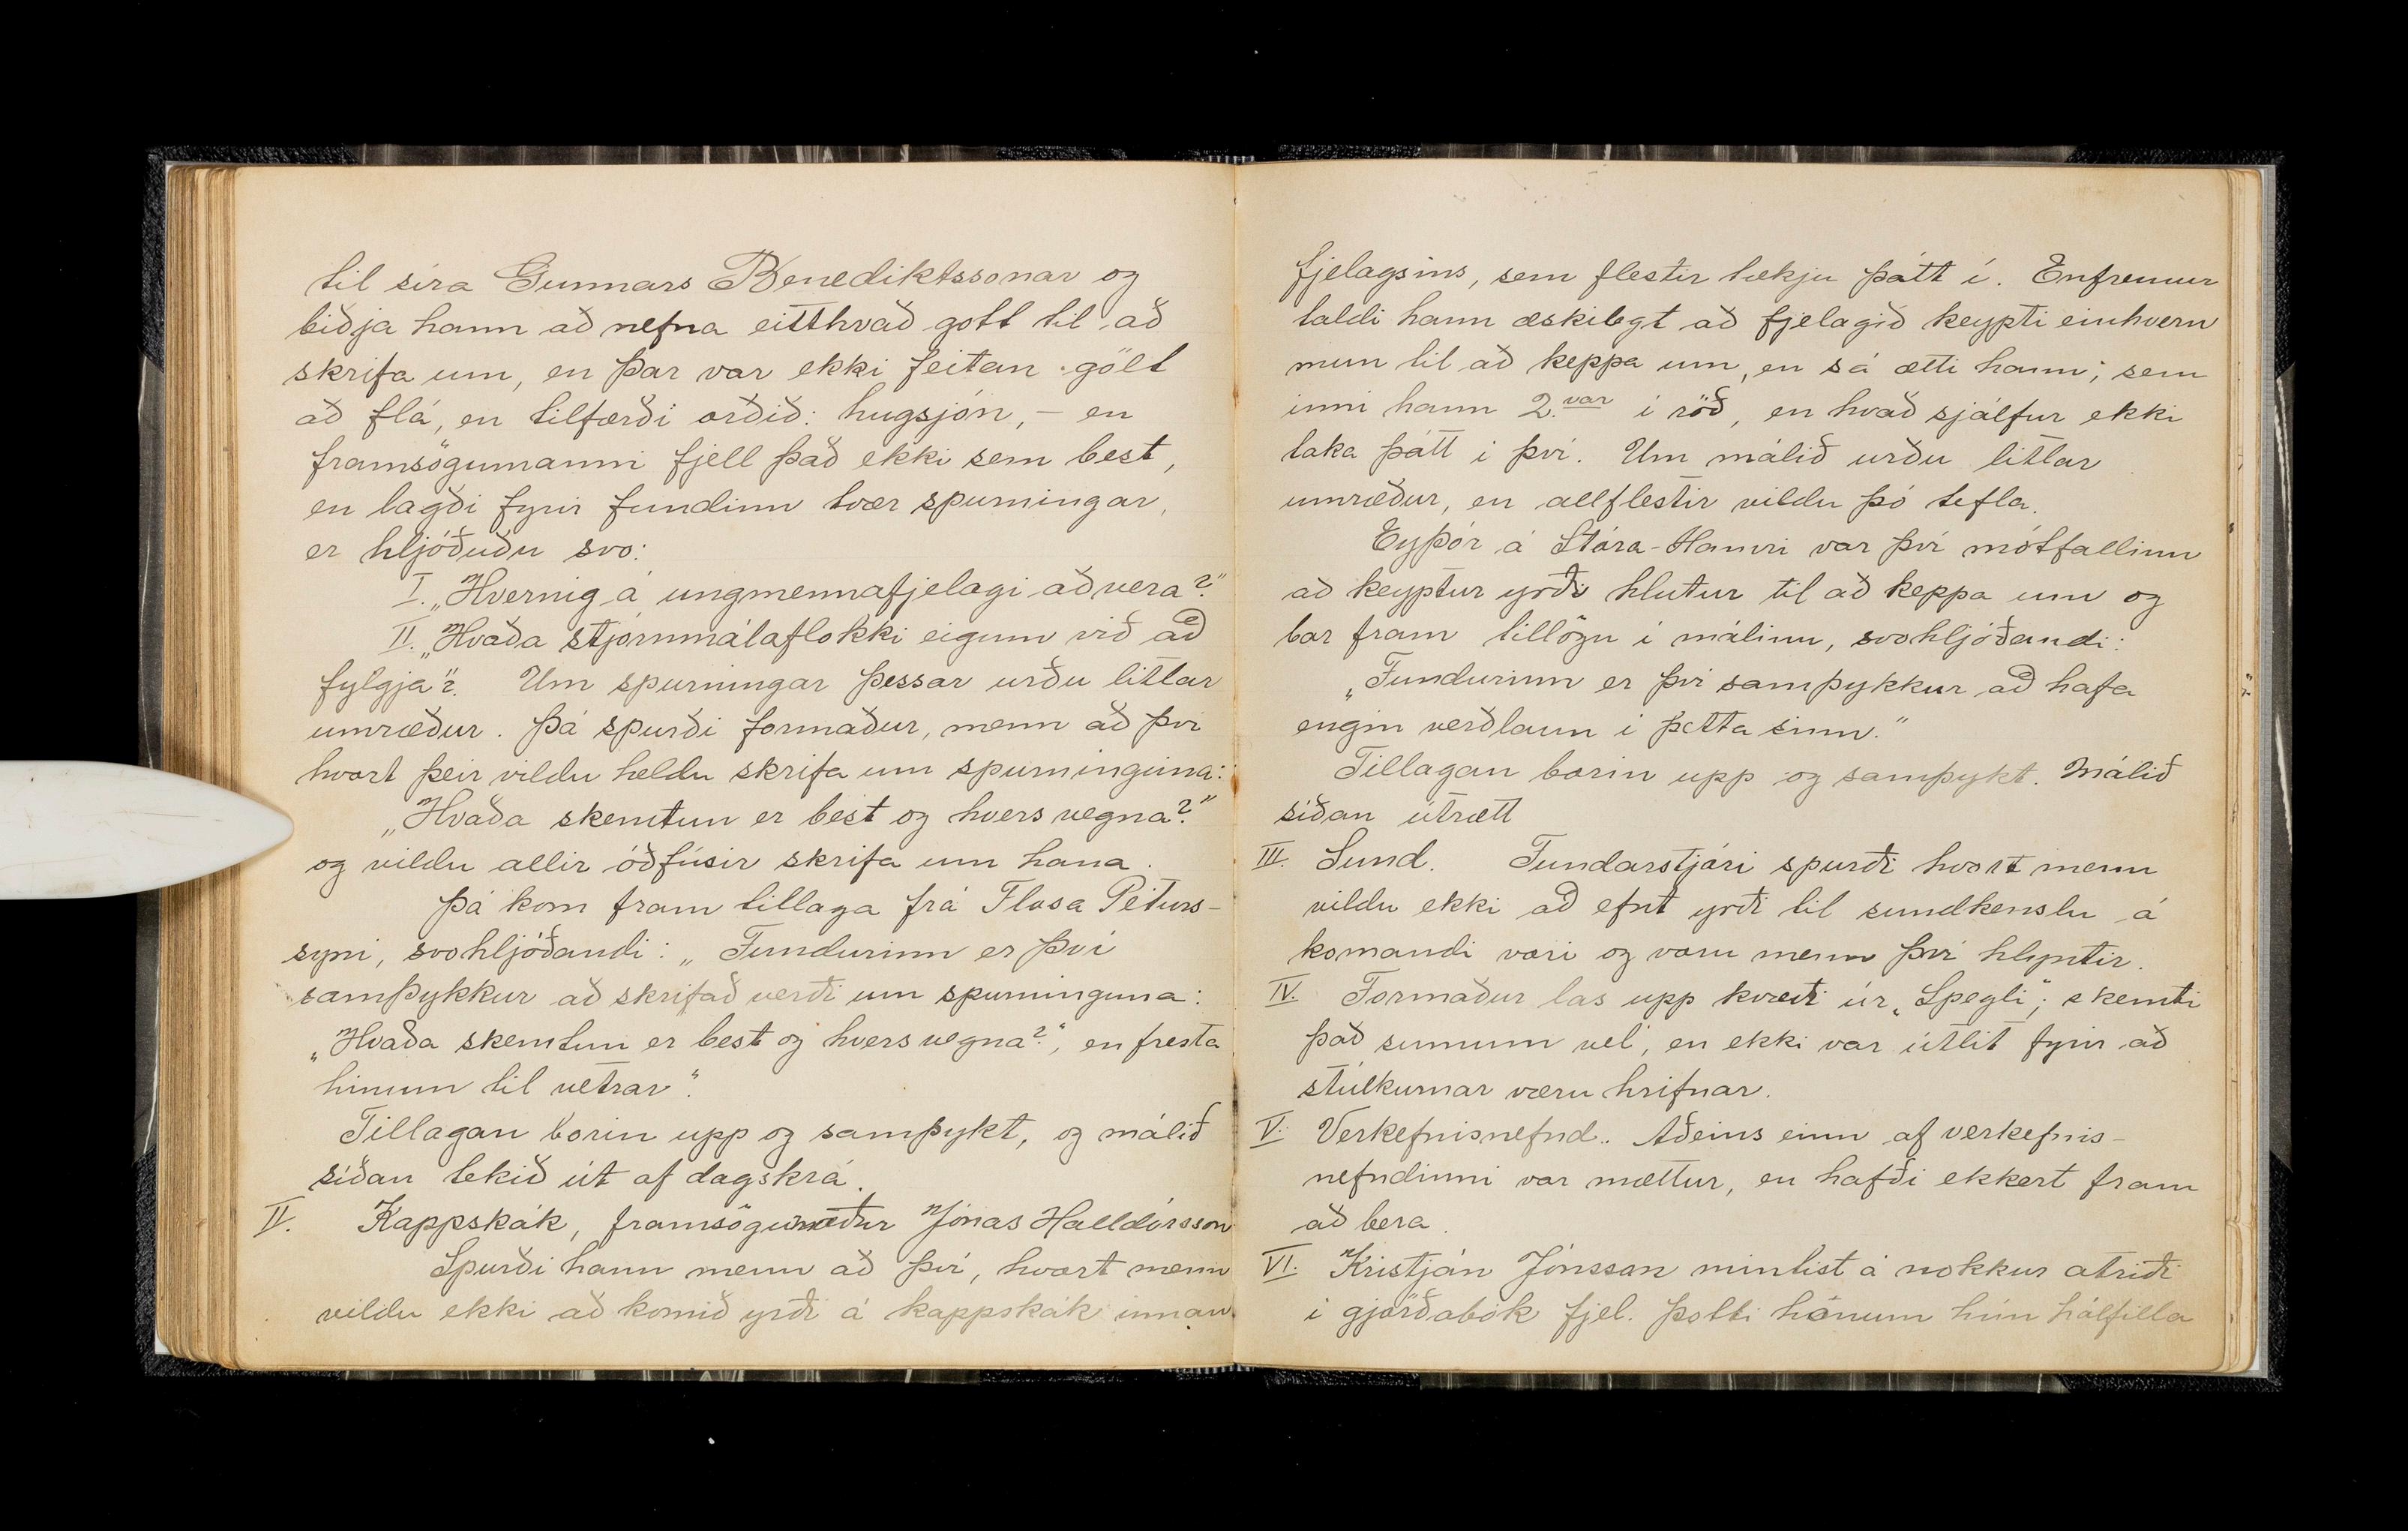 til síra Gunnars Benediktssonar og
biðja hann að nefna eitthvað gott til að
skrifa um, en þar var ekki feitan gölt
að flá, en tilfærði orðið: hugsjón, – en
framsögumanni fjell það ekki sem best,
en lagði fyrir fundinn tvær spurningar,
er hljóðuðu svo:
I. „Hvernig á ungmennafjelagi að vera?"
II. „Hvaða stjórnmálaflokki eigum við að
fylgja"? Um spurningar þessar urðu litlar
umræður. Þá spurði formaður, menn að því
hvort þeir vildu heldu skrifa um spurninguna:
„Hvaða skemtun er best og hvers vegna?"
og vildu allir óðfúsir skrifa um hana.
Þá kom fram tillaga frá Flosa Péturs-
syni, svohljóðandi: „Fundurinn er því
samþykkur að skrifað verði um spurninguna:
„Hvaða skemtun er best og hvers vegna?", en fresta
hinum til vetrar".
Tillagan borin upp og samþykt, og málið
síðan tekið út af dagskrá.
II. Kappskák, framsögumaður Jónas Halldórsson
Spurði hann menn að því, hvort menn
vildu ekki að komið yrði á kappskák innan
fjelagsins, sem flestir tækju þátt í. Enfremur
taldi hann æskilegt að fjelagið keypti einhvern
mun til að keppa um, en sá ætti hann, sem
inni hann 2.var í röð, en hvað sjálfur ekki
taka þátt í því. Um málið urðu litlar
umræður, en allflestir vildu þó tefla.
Eyþór á Stóra-Hamri var því mótfallinn
að keyptur yrði hlutur til að keppa um og
bar fram tillögu í málinu, svohljóðandi:
„Fundurinn er því samþykkur að hafa
engin verðlaun í þetta sinn."
Tillagan borin upp og samþykt. Málið
síðan útrætt
III. Sund. Fundarstjóri spurði hvort menn
vildu ekki að efnt yrði til sundkenslu á
komandi vori og voru menn því hlyntir.
IV. Formaður las upp kvæði úr „Spegli"; skemti
það sumum vel, en ekki var útlit fyrir að
stúlkurnar væru hrifnar.
V. Verkefnisnefnd. Aðeins einn af verkefnis-
nefndinni var mættur, en hafði ekkert fram
að bera.
VI. Kristján Jónsson mintist á nokkur atriði
í gjörðabók fjel. þótti hönum hún hálfilla